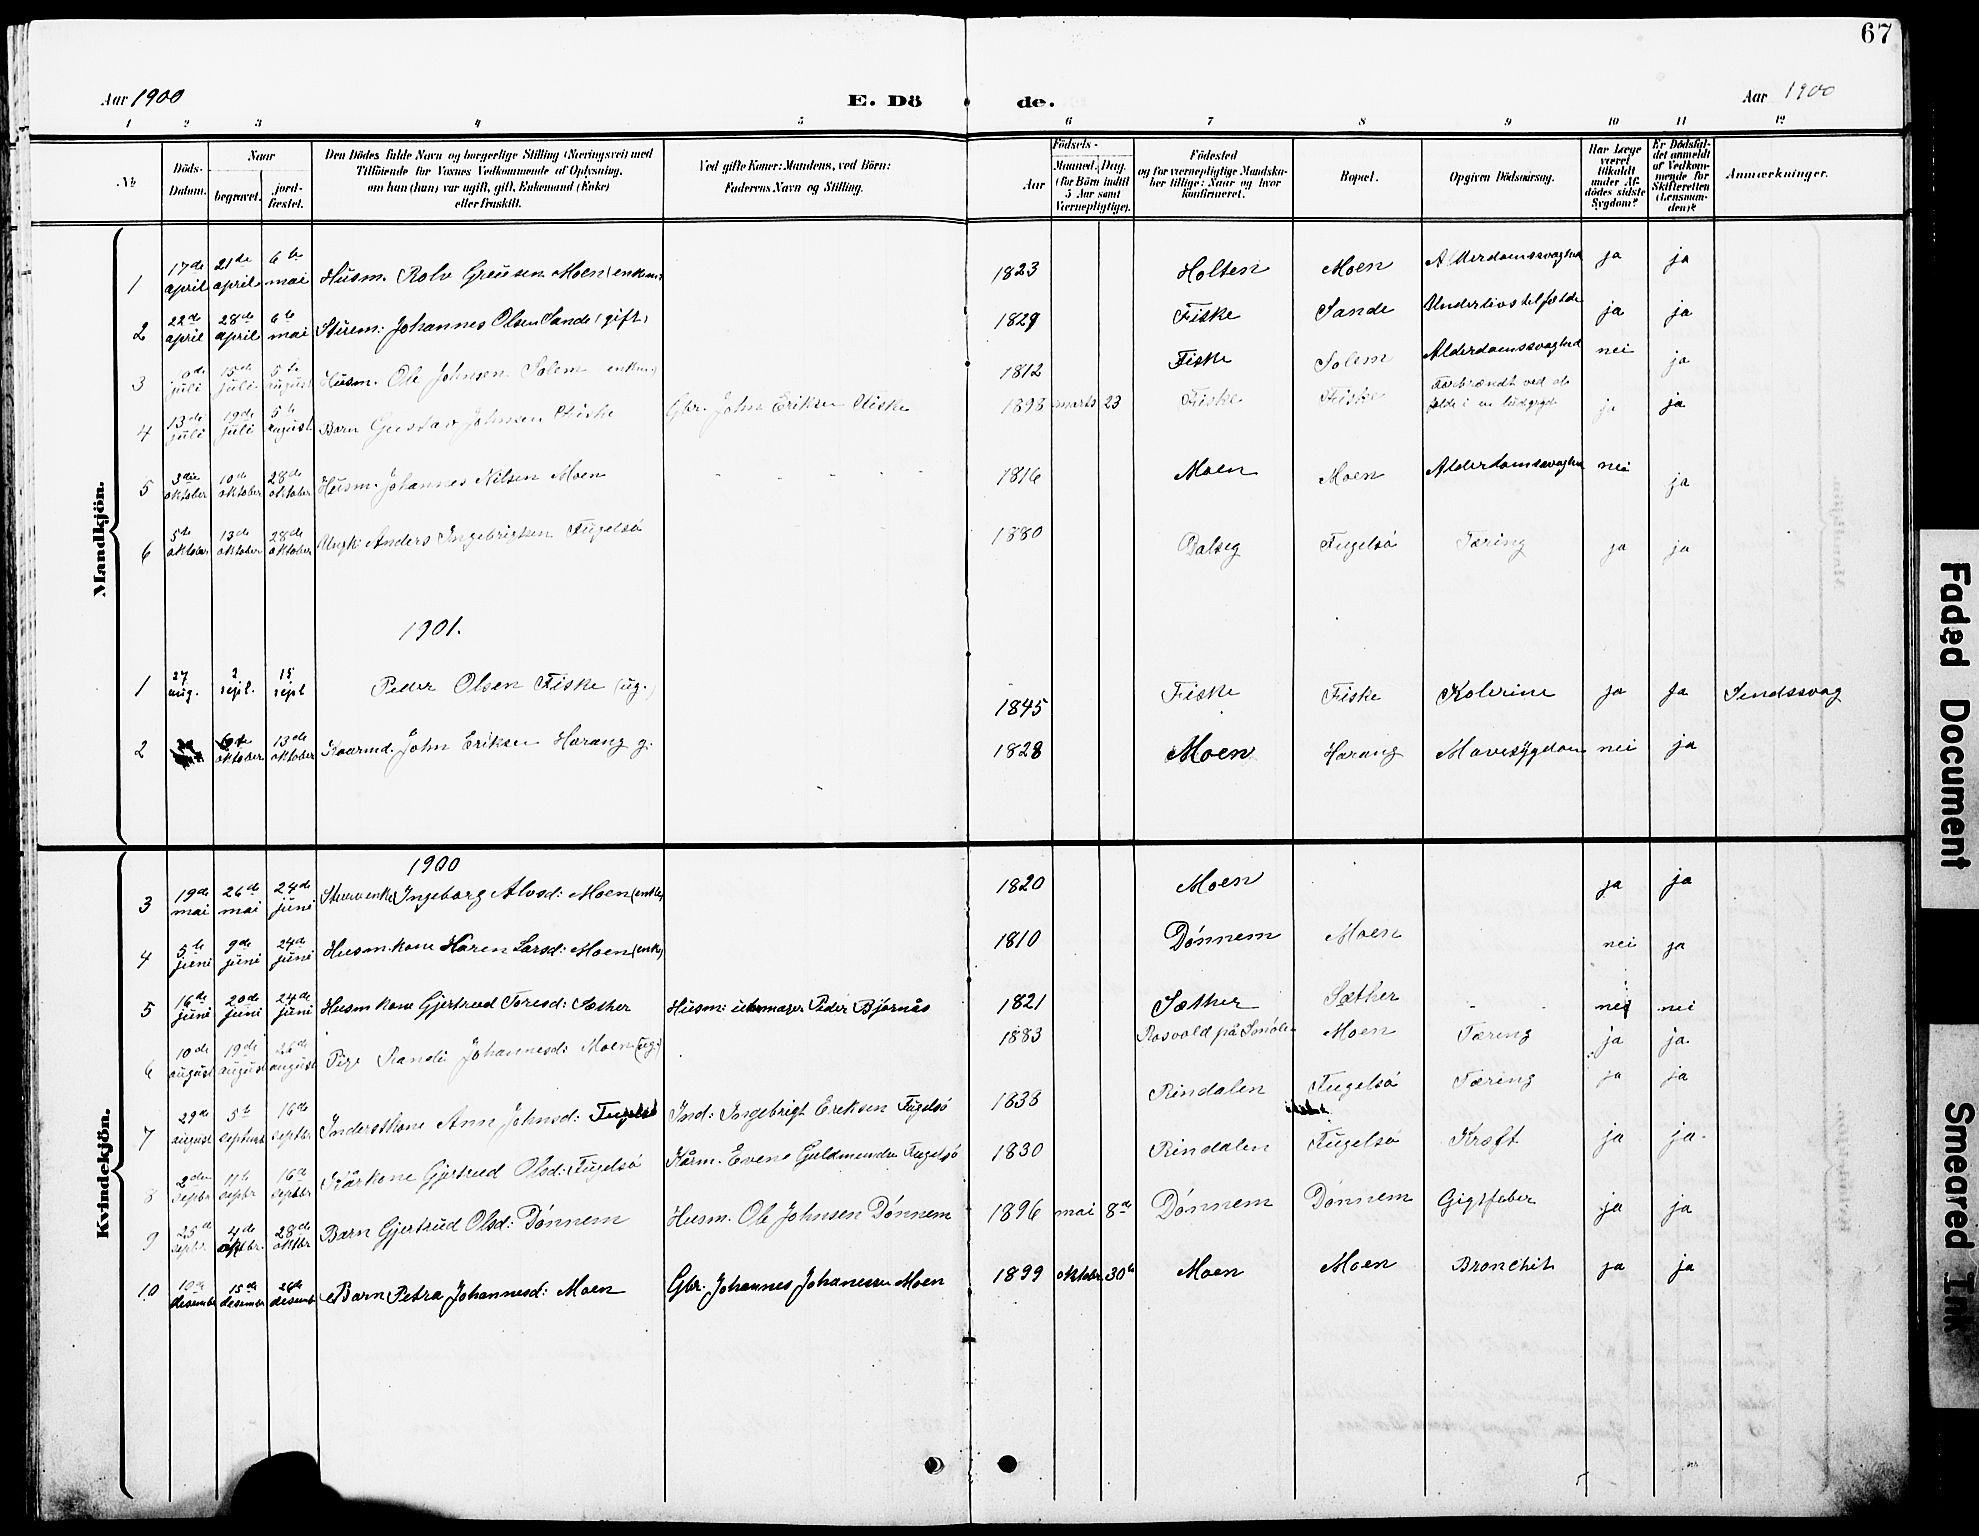 67
Aar 1900 E. Dö de. Aar 1900
1 2 3 4 5 6 7 8 9 10 11 12
No. Döds-Datum. Naar begravet. jord-fæstet. Den Dödes fulde Navn og borgerlige Stilling (Næringsvei) med Tilföiende for Voxnes Vedkommende af Oplysning, om han (hun) var ugift, gift, Enkemand (Enke) eller fraskilt. Ved gifte Koner: Mandens, ved Börn: Faderens Navn og Stilling. Födsels- Aar Maaned. Dag. (for Börn indtil 5 Aar samt Værnepligtige). Födested og for værnepligtige Mandskaber tillige: Naar og hvor konfirmeret. Bopæl. Opgiven Dödsaarsag. Har Læge været tilkaldt under Afdödes sidste Sygdom? Er Dödsfaldet anmeldt af Vedkommende for Skifteretten (Lensmanden)? Anmærkninger.
Mandkjön.
1 17de april 21de april 6te mai Husm. Rolv Moen (enkem.) 1823 Holten Moen Alderdomssvaghed ja ja
2 22de april 28de april 6te mai Johannes Olsen Sande (gift) 1829 Fiske Sande Underlivstilfælde ja ja
3 juli 15de juli 5te august Husm. Ole Johnsen Solem enkem. 1812 Fiske Solem Alderdomssvaghed nei ja
4 13de juli 19de juli 5te august Barn Gustav Johnsen Fiske Gbr. John Eriksen Fiske 1898 marts 23 Fiske Fiske Forbrændt ved at falde i en ja ja
5 3die oktober 10de oktober 28de oktober Husm. Johannes Nilsen Moen 1816 Moen Moen Alderdomssvaghed nei ja
6 5te oktober 13de oktober 28de oktober Ungk. Anders Ingebrigtsen Fugelsö 1880 Balseg Fugelsö Tæring ja ja
1901.
1 27 aug. 2 sept. 15 sept Peder Olsen Fiske (ug.) 1845 Fiske Fiske Kolerine ja ja Sindssvag
2 6te oktober 13de oktober Kaarmd. John Eriksen Harang g. 1828 Moen Harang Mavesygdom nei ja
Kvindekjön.
1900
3 19de mai 26de mai 24de juni Ingeborg Alvsd: Moen (enke) 1820 Moen ja ja
4 5te juni 9de juni 24de juni Husmkone Karen Larsd: Moen (enke) 1810 Dönnem Moen nei ja
5 16de juni 20de juni 24de juni Husmkone Gjertrud Toresd: Sæther Husm: Peder Bjørnås 1821 Sæther Sæther nei nei
6 10de august 19de august 26de august Pige Randi Johannesd: Moen (ug.) 1883 Rosvold på Smölen Moen Tæring ja ja.
7 29de august 5te septbr 16de septbr Inderstkone Ann Johnsd: Fugelsö Ind: Ingebrigt Eriksen Fugelsö 1833 Rindalen Fugelsö Tæring ja ja
8 2den septbr 11te septbr 16de septbr Kårkone Gjertrud Olsd: Fugelsö Kårm. Evens Guldmundsen Fugelsö 1830 Rindalen Fugelsö Kræft ja ja.
9 25de septbr. 4de oktbr. 28de oktbr Barn Gjertrud Olsd: Dönnem Husm. Ole Johnsen Dönnem 1896 mai 8de Dönnem Dönnem Gigtfeber ja ja
10 10de desember 15de desember 26de desember Barn Petra Johannesd: Moen Gbr. Johannes Johansen Moen 1899 oktober 30te Moen Moen Bronchit ja ja
Faded Document
Smeared Ink